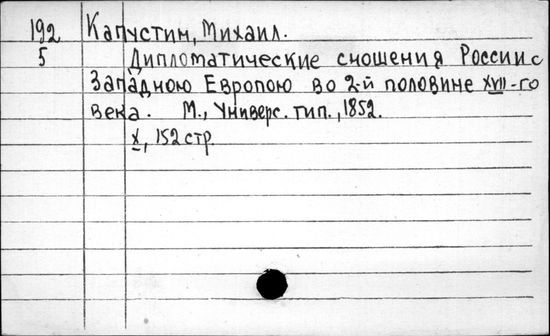 192 Капустин, Михаил.
5 Дипломатические сношения России с
Западною Европою во 2-й половине XVII-го
века. М., Универс. тип., 1852.
X, 152 стр.